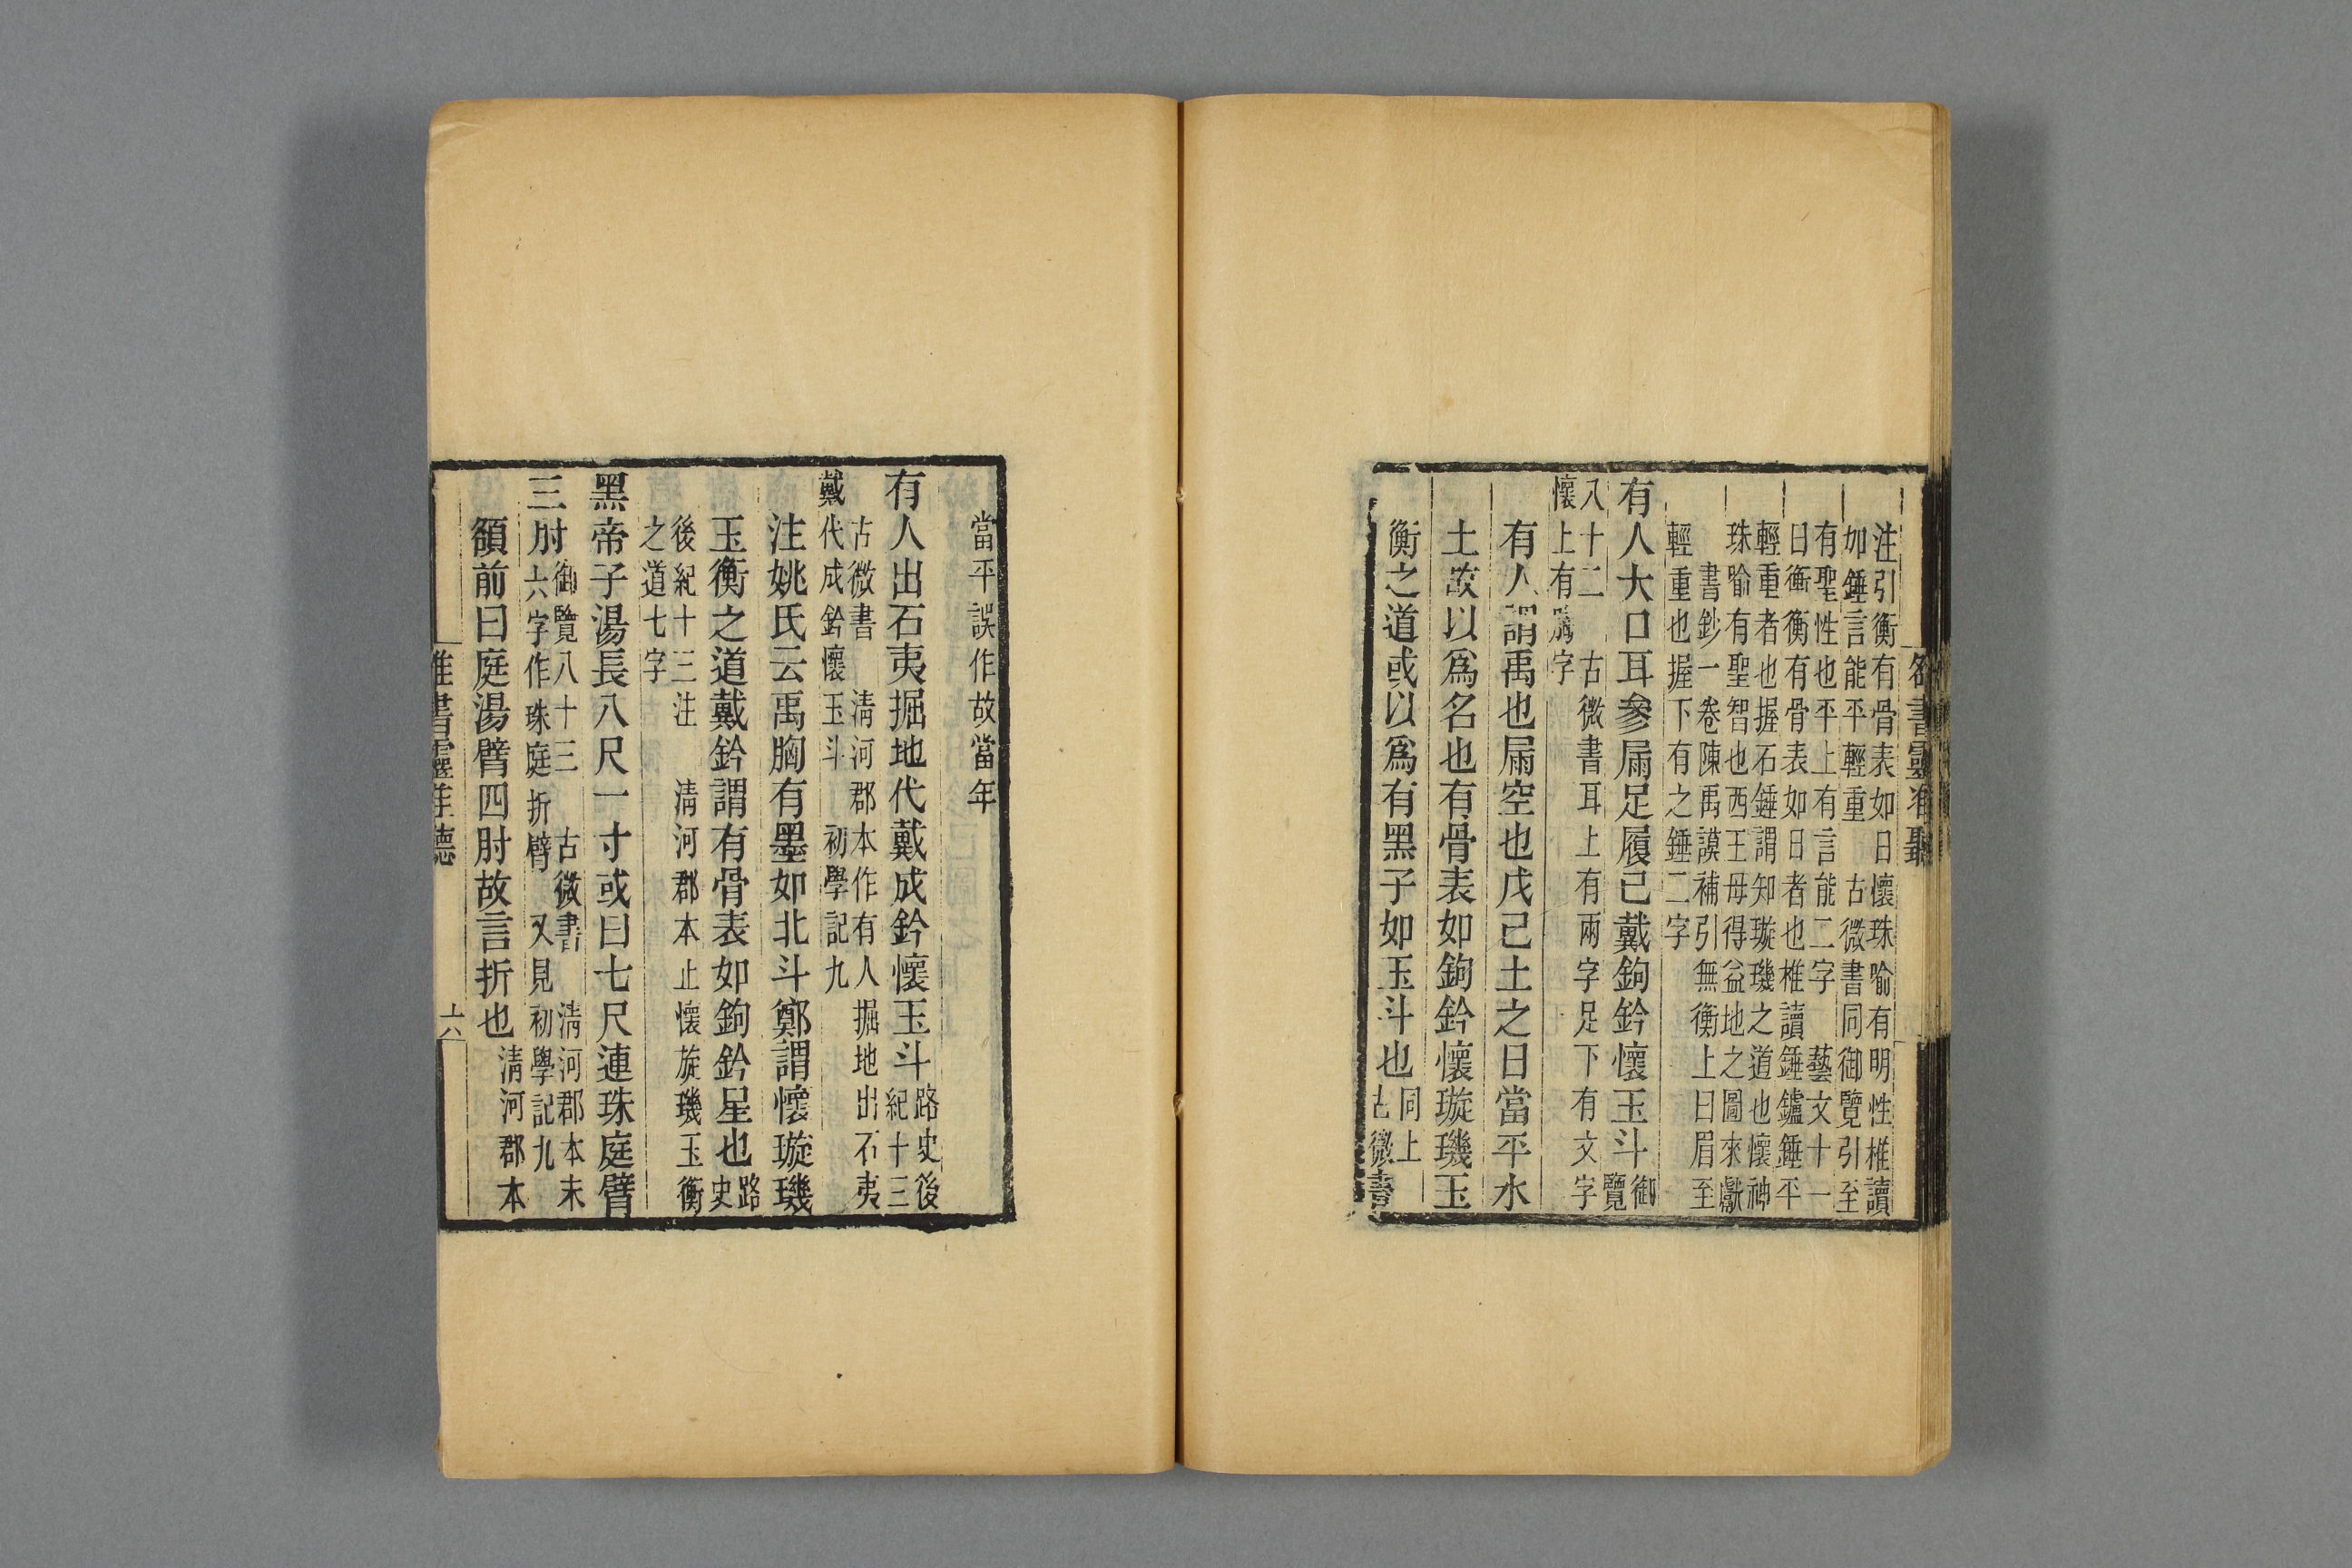 注引衡有骨表如日懷珠喻有明性椎讀
如錘言能平輕重　古微書同御覽引至
有聖性也平上有言能二字　藝文十一
日衡衡有骨表如日者也椎讀錘鑪錘平
輕重者也握石錘謂知璇璣之道也懷神
珠喻有聖智也西王母得益地之圖來獻
書鈔一卷陳禹謨補引無衡上曰眉至
輕重也握下有之錘二字
有人大口耳參屚足履己戴鉤鈐懷玉斗御覽
八十二　古微書耳上有兩字足下有文字
懷上有字
有人謂禹也屚空也戊己土之日當平水
土故以爲名也有骨表如鉤鈐懷璇璣玉
衡之道或以爲有黑子如玉斗也同上
古微書
當平誤作故當年
有人出石夷掘地代戴成鈐懷玉斗路史後紀十三
古微書　清河郡本作有人掘地出石夷
戴代成鈐懷玉斗　初學記九
注姚氏云禹胸有墨如北斗鄭謂懷璇璣
玉衡之道戴鈐謂有骨表如鉤鈐星也路史
後紀十三注　清河郡本止懷旋璣玉衡
之道七字
黑帝子湯長八尺一寸或曰七尺連珠庭臂
三肘御覽八十三　古微書　清河郡本末
六字作珠庭折臂　又見初學記九
額前曰庭湯臂四肘故言折也清河郡本
六